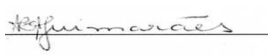 Guimarães